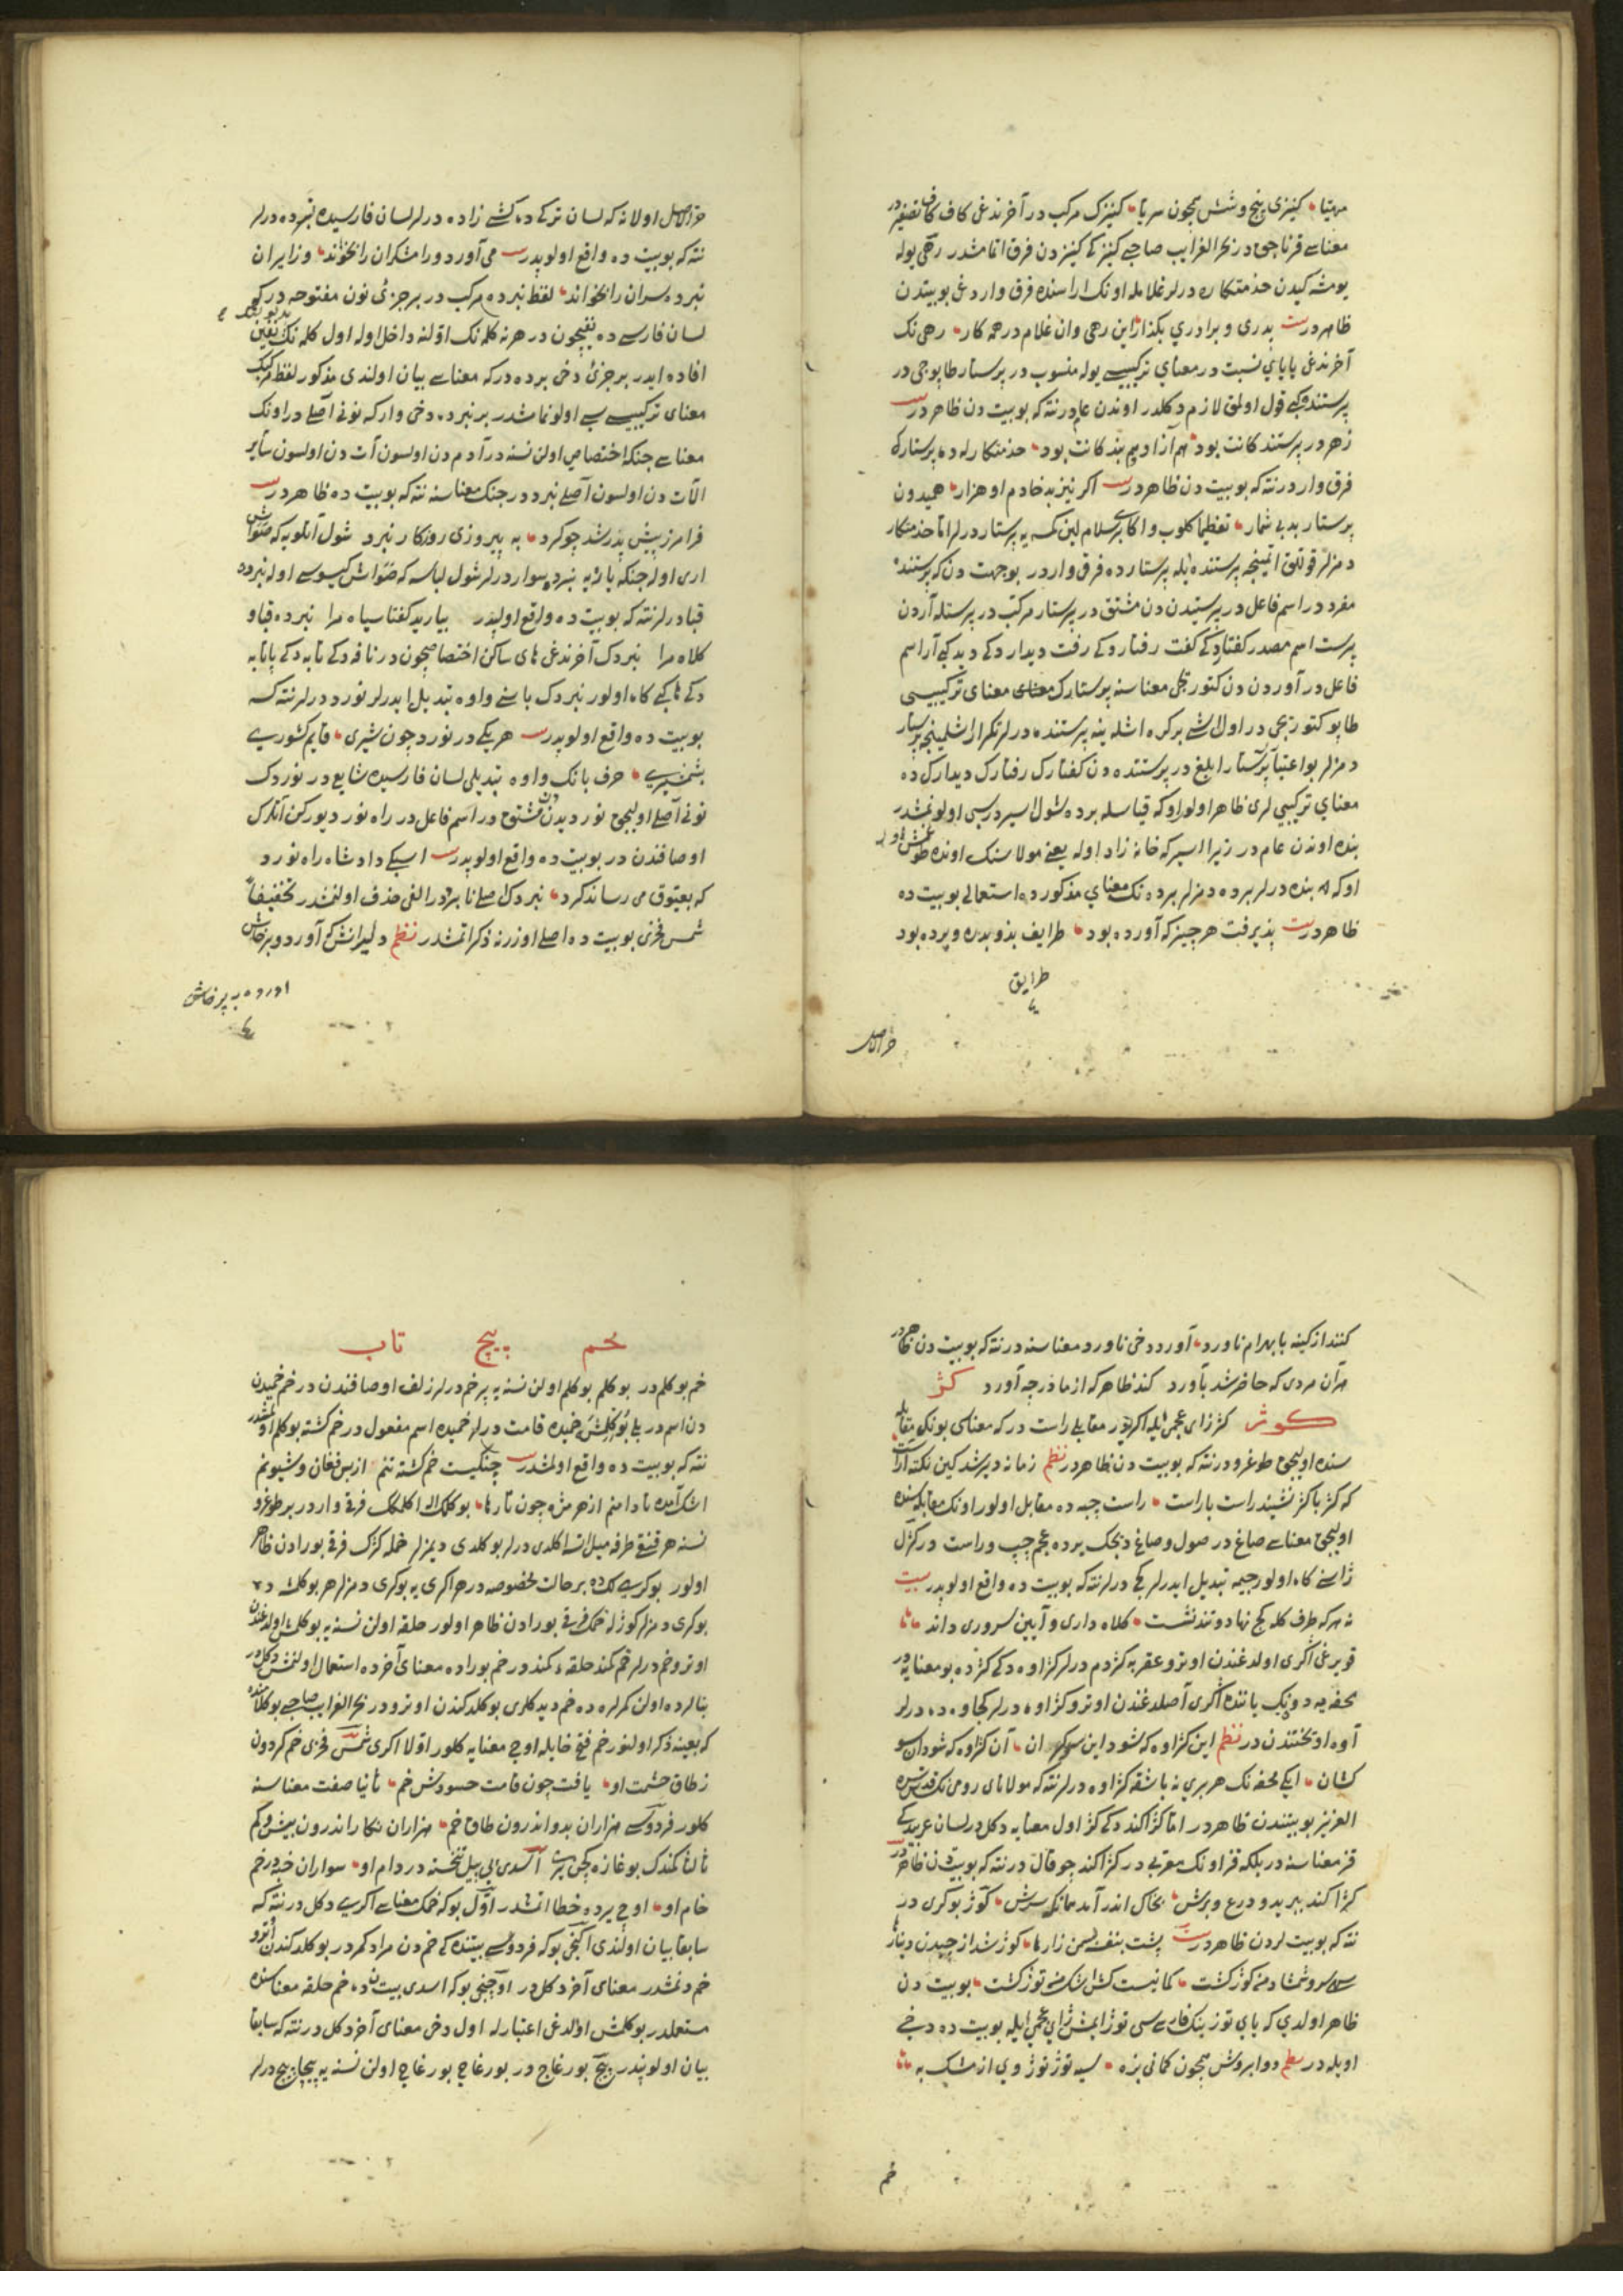 مهیتا کنیزی پنج و شش همچون سریا کنیزک مرکب در آخرنده غی کاف کاف تصغیر در
معناسی قرناجق در بحر الغرایب صاحبی کنیزکی کنیزدن فرق اتمامشدر رهی یوله
خدمتکاره درلر غلامله اونک اراسنده فرق واردغی بو بیتدن
ظاهردر بیت پدری و برادری بکذار این رهی وان غلام در همه کار رهی نک
آخرنده غی یایای نسبت در معنای ترکیبیسی یوله منسوب در پرستار طاپوجی در
پرستنده کبی قول اولمق لازم دکلدر اوندن عام در نته که بو بیت دن ظاهردر بیت
زهر در پرستندکانت بود هم آزاد و هم بندکانت بود خدمتکارله ده پرستارک
فرق واردر نته که بو بیت دن ظاهردر بیت اکر نیز بد خادم او هزار همیدون
پرستار بد بی شمار تعظیما کلوب واکا سلام لین کمسه یه پرستار درلر اما خدمتکار
دمزلر قوللق اتمینجه پرستنده ایله پرستارده فرق واردر بو جهت دن که پرستنده
مفرد در اسم فاعل در پرستیدن دن مشتق در پرستار مرکب در پرستله آردن
پرست اسم مصدر کفتار دکی کفت رفتار دکی رفت دیدار دکی دید کبی آر اسم
فاعل در آوردن دن کتوریجی معناسنه پرستارک معنای ترکیبیسی
طاپو کتوریجی در اول ایشی بر کره اشلینه پرستنده درلر تکرار اشلینجه پرستار
دمزلر بو اعتباریله پرستار ابلغ در پرستنده دن کفتارک رفتارک دیدارک ده
معنای ترکیبی لری ظاهر اولور او که قیاسله برده شول اسیر در سی اولونمشدر
بنده اوندن عام در زیرا اسیر که خانه زاد اوله یعنی مولاسنک اونده طوغمش اوله
اوکه بنده درلر برده دمزلر برده نک معنای مذکورده استعمالی بو بیت ده
ظاهردر بیت پذیرفت هر چیز که آورده بود طرایف بذو بدره و پرده بود
طرایق
خر الاصل
خر الاصل اولانه که لسان ترکی ده کشی زاده درلر لسان فارسیده نبرده درلر
نته که بو بیت ده واقع اولوبدر بیت می آورد و رامشکران را بخواند وز ایران
نبرده سران را بخواند لفظ نبرده مرکب در بر جزئی نون مفتوحه در که
لسان فارسی ده نفیچون در هر نه کلمه نک اولنه داخل اوله اول کلمه نک نقیضین
افاده ایدر بر جزئی دخی برده در که معناسی بیان اولندی مذکور لفظ مرکبک
معنای ترکیبیسی اولونمامشدر بر نبرده دخی وار که نونی اصلی در اونک
معناسی جنکه اختصاصی اولن نسنه در آدم دن اولسون آت دن اولسون سایر
الات دن اولسون اصلی نبرد در جنک معناسنه نته که بو بیت ده ظاهردر بیت
فرامرز پیش پدر شد چو کرد به پیروزی روزکار نبرد شول آتلویه که صواش
اری اوله جنکه یاریه نبرده سوار درلر شول لباسه که صواش کیسوسی اوله نبرده
قبا درلر نته که بو بیت ده واقع اولوبدر بیارید کفتا سیاه مرا نبرده قبا و
کلاه مرا نبردک آخرنده غی های ساکن اختصاصیچون در نافه دکی تابه دکی پاتابه
دکی ها کبی کاه اولور نبردک باسنی واوه تبدیل ایدرلر نورد درلر نته که
بو بیت ده واقع اولوبدر بیت هر یکی در نورد چون شیری قایم کشوری
بشمشیری حرف بانک واوه تبدیلی لسان فارسیده شایع در نوردک
نونی اصلی اولیجق نوردیدن دن مشتق در اسم فاعل در راه نورد دیورکن آتلرک
اوصافندن در بو بیت ده واقع اولوبدر بیت اسبکی داد شاه راه نورد
که بعیوق می رساند کرد نبردک اصلی نابرد در الفی حذف اولنمشدر تخفیفا
شمس فخری بو بیت ده اصلی اوزرنه ذکر اتمشدر نظم دلیرانش که آورد و برخاش
آورده به پرخاش
کنند از کینه با بهرام ناورد آورد دخی ناورد معناسنه در نته که بو بیت دن ظاهر در
مرآن مردی که حاضر شد بآورد کند ظاهر که از مادر چه آورد کژ
کوژ کژ زای عجمی ایله اکریدر مقابلی راست در که معناسی بونک مقابله
سنده اولیجق طوغرودر نته که بو بیت دن ظاهردر نظم زمانه دیر شد کین نکته آراست
که کژ با کژ نشیند راست با راست راست چپه ده مقابل اولور اونک مقابله سنده
اولیجق معناسی صاغ در صول و صاغ دیجک یرده عجم چپ و راست درلر کژک
ژاسنی کاه اولور جیمه تبدیل ایدرلر کج درلر نته که بو بیت ده واقع اولوبدر بیت
نه هر که طرف کله کج نهاد و تند نشست کلاه داری و آیین سروری داند
قویرغی اکری اولدغندن اوترو عقربه کژدم درلر کژاوه دکی کژ ده بو معنایه در
محفه یه دونک یاننده اکری آصلدغندن اوترو کژاوه درلر کجاوه ده درلر
آوه اوتختندن در نظم این کژاوه که شود این سو کران آن کژاوه که شود آن سو
کشان ایکی محفه نک هر بری نه باشقه کژاوه درلر نته که مولانای رومی نک قدس سره
العزیز بو بیتندن ظاهردر اما کژاکند دکی کژ اول معنایه دکلدر لسان عربیده کی
قز معناسنه در بلکه قز اونک معربی در کژاکند چوقال در نته که بو بیت دن ظاهردر بیت
کژاکند ببرید و درع و برش بخاک اندر آمد همانکه سرش کوژ بوکری در
نته که بو بیت لردن ظاهردر بیت پشت بنفشه بسمن زارها کوژ شد از چیدن دینارها
سرو شمشاد من کوژ کشت کمانیست کش اشک من توژ کشت بو بیت دن
ظاهر اولدی که یای توز ینک فارسی سی توژ ایمش ژای عجمی ایله بو بیت ده دخی
اویله در نظم دو ابروش همچون کمانی بزه سیه توژ توژ وی از مشک به
خم
خم پیچ تاب
خم بوکلم در بوکلم بوکلم اولن نسنه یه پر خم درلر زلف اوصافندن در خم خمیدن
دن اسم در بلی بوکلمش خمیده قامت درلر خمیده اسم مفعول در خم کشته بوکلم اولمشدر
نته که بو بیت ده واقع اولمشدر بیت چنکیست خم کشته تنم از بس فغان و شیونم
اشک آمده تا دامنم از هر مژه چون تارها بوکلمک ایله اکلمکک فرقی واردر بر طوغرو
نسنه هر قنغی طرفه میل اتسه اکلدی درلر بوکلدی دیمزلر خمله کژک فرقی بورادن ظاهر
اولور بوکریلک ده بر حالت مخصوصه در هر اکری یه بوکری دمزلر هر بوکلمشه ده
بوکری دمزلر کوژله خمک فرقی بورادن ظاهر اولور حلقه اولن نسنه یه بوکلمش اولدغندن
اوترو خم درلر خم کمند حلقه کمند در خم بوراده معنای آخرده استعمال اولنمش دکلدر
بنالرده اولن کمرلرده ده خم دیدکلری بوکلدکندن اوترودر بحر الغرایب صاحبی بو کلامنده
که بعینه ذکر اولنور خم فتح خا ایله اوچ معنایه کلور اولا اکری شمس فخری خم کردون
ز طاق حشمت او یافت چون قامت حسودش خم ثانیا صفت معناسنه
کلور فردوسی هزاران بدو اندرون طاق خم هزاران نکار اندرون بیش و کم
ثالثا کمندک بوغازه کچن یری اسدی بیل تنخسته در دام او سواران خبه در خم
خام او اوچ یرده خطا اتمشدر اول بو که خمک معناسی اکری دکلدر نته که
سابقا بیان اولندی ایکنجی بو که فردوسی بیتنده کی خم دن مراد کمردر بوکلدکندن اوترو
خم دنمشدر معنای آخر دکلدر اوچنجی بو که اسدی بیتنده خم حلقه معناسنده
مستعملدر بوکلمش اولدغی اعتبارله اول دخی معنای آخر دکلدر نته که سابقا
بیان اولوبدر پیچ بورغاج در بورغاج بورغاج اولن نسنه یه پیچاپیچ درلر